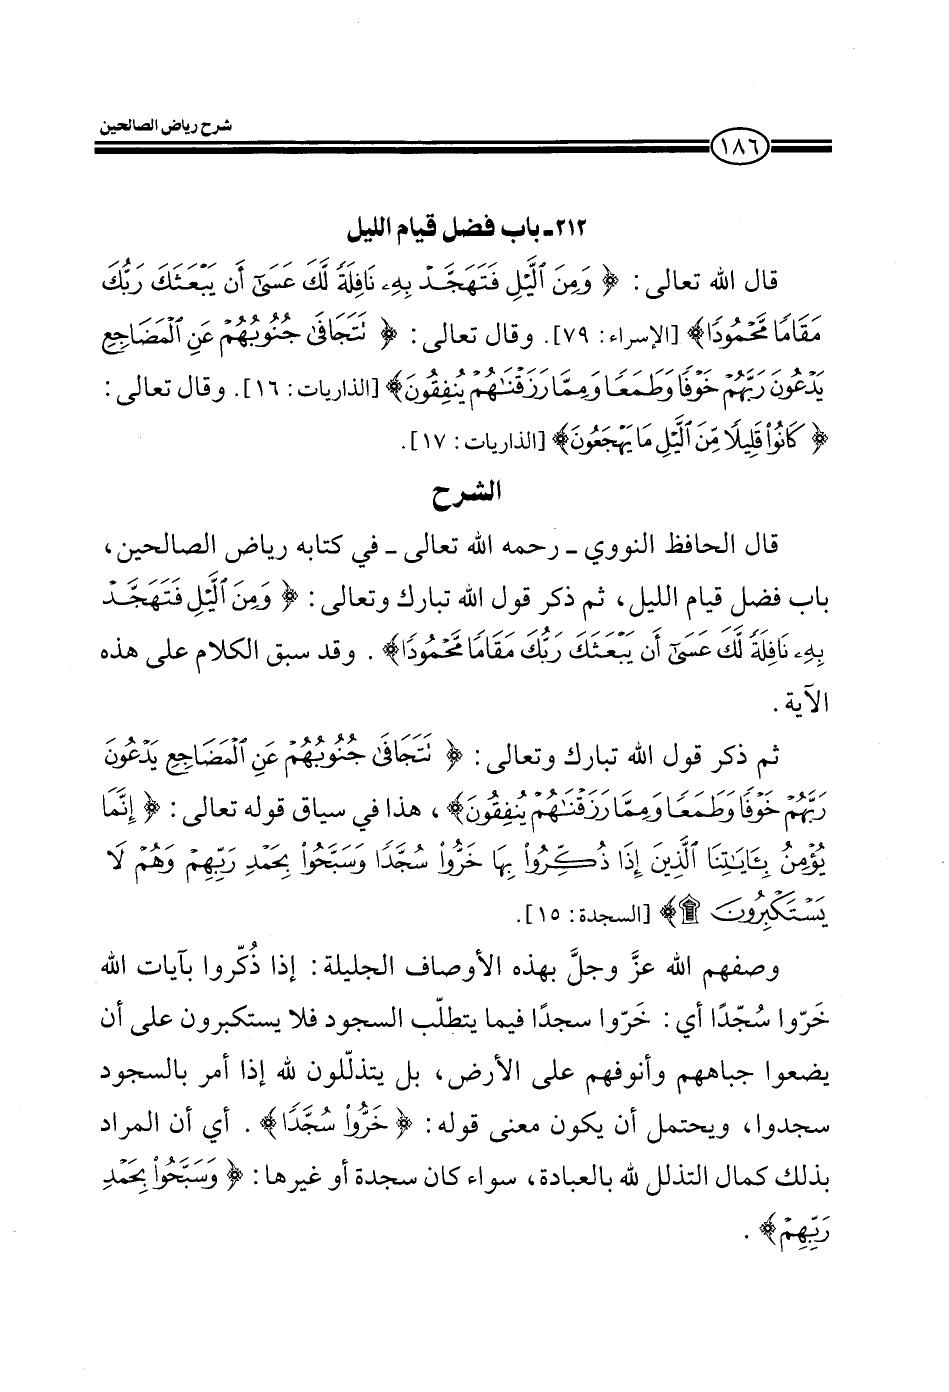 شرح رياض الصالحين
١٨٦
٢١٢ـ باب فضل قيام الليل
قال الله تعالى: ﴿ وَمِنَ ٱلَّيْلِ فَتَهَجَّدْ بِهِۦ نَافِلَةً لَّكَ عَسَىٰٓ أَن يَبْعَثَكَ رَبُّكَ
مَقَامًا مَّحْمُودًا﴾ [الإسراء: ٧٩]. وقال تعالى: ﴿ نَتَجَافَىٰ جُنُوبُهُمْ عَنِ ٱلْمَضَاجِعِ
يَدْعُونَ رَبَّهُمْ خَوْفًا وَطَمَعًا وَمِمَّا رَزَقْنَٰهُمْ يُنفِقُونَ﴾ [الذاريات: ١٦]. وقال تعالى:
﴿ كَانُوا۟ قَلِيلًا مِّنَ ٱلَّيْلِ مَا يَهْجَعُونَ﴾ [الذاريات: ١٧].
الشرح
قال الحافظ النووي ـ رحمه الله تعالى ـ في كتابه رياض الصالحين،
باب فضل قيام الليل، ثم ذكر قول الله تبارك وتعالى: ﴿ وَمِنَ ٱلَّيْلِ فَتَهَجَّدْ
بِهِۦ نَافِلَةً لَّكَ عَسَىٰٓ أَن يَبْعَثَكَ رَبُّكَ مَقَامًا مَّحْمُودًا﴾ . وقد سبق الكلام على هذه
الآية .
ثم ذكر قول الله تبارك وتعالى: ﴿ نَتَجَافَىٰ جُنُوبُهُمْ عَنِ ٱلْمَضَاجِعِ يَدْعُونَ
رَبَّهُمْ خَوْفًا وَطَمَعًا وَمِمَّا رَزَقْنَٰهُمْ يُنفِقُونَ﴾ ، هذا في سياق قوله تعالى: ﴿ إِنَّمَا
يُؤْمِنُ بِـَٔايَٰتِنَا ٱلَّذِينَ إِذَا ذُكِّرُوا۟ بِهَا خَرُّوا۟ سُجَّدًا وَسَبَّحُوا۟ بِحَمْدِ رَبِّهِمْ وَهُمْ لَا
يَسْتَكْبِرُونَ ۩﴾ [السجدة: ١٥].
وصفهم الله عزَّ وجلَّ بهذه الأوصاف الجليلة: إذا ذُكّروا بآيات الله
خَرّوا سُجّدًا أي: خَرّوا سجدًا فيما يتطلّب السجود فلا يستكبرون على أن
يضعوا جباههم وأنوفهم على الأرض، بل يتذلّلون لله إذا أمر بالسجود
سجدوا، ويحتمل أن يكون معنى قوله: ﴿ خَرُّوا۟ سُجَّدًا﴾ . أي أن المراد
بذلك كمال التذلل لله بالعبادة، سواء كان سجدة أو غيرها: ﴿ وَسَبَّحُوا۟ بِحَمْدِ
رَبِّهِمْ﴾ .